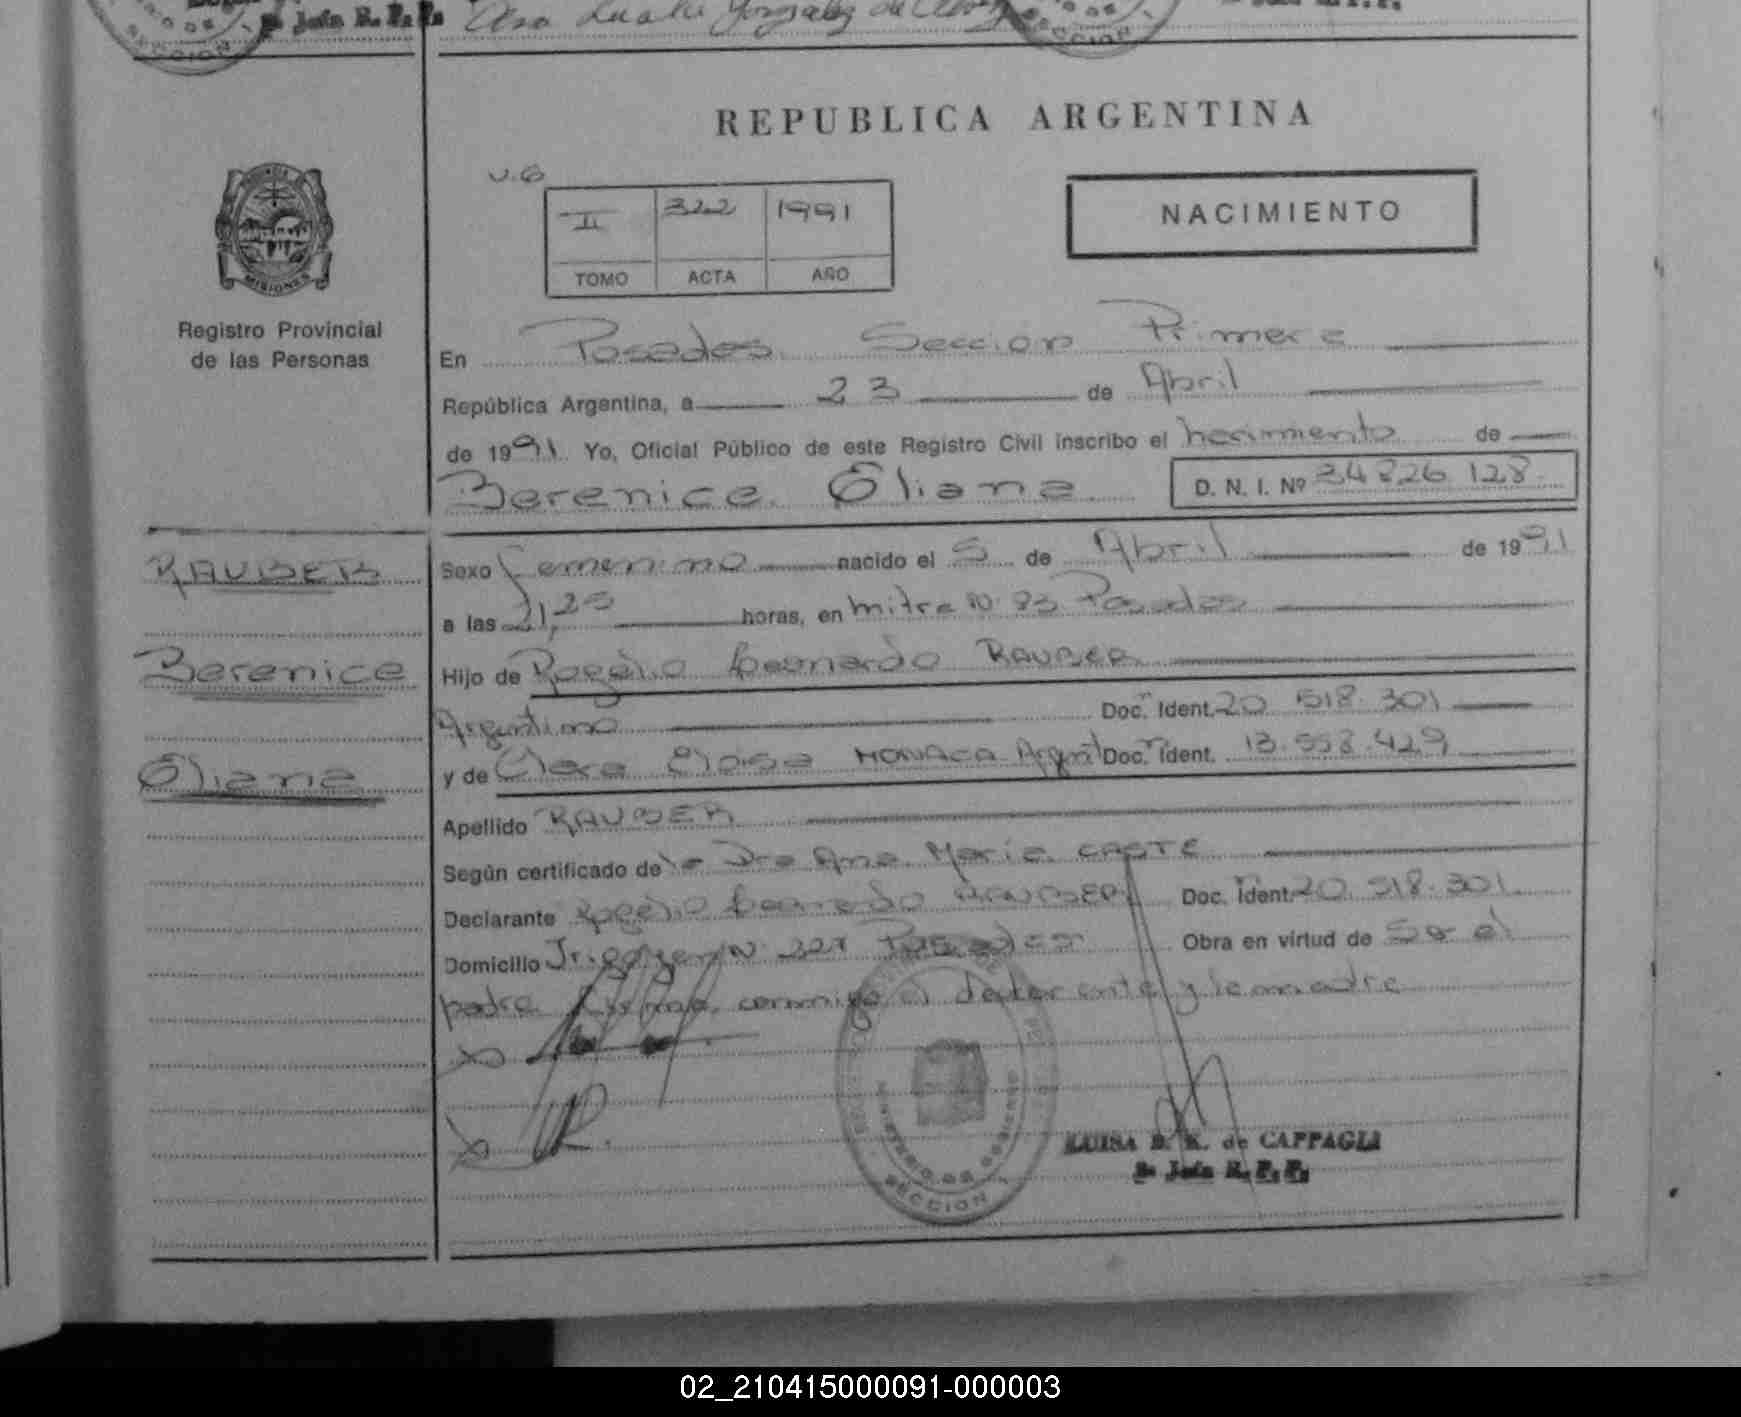 Ana
Gonzalez de
SECCION
REPUBLICA ARGENTINA
II 322 1991
TOMO ACTA AÑO
NACIMIENTO
MISIONES
Registro Provincial
de las Personas
En Posadas Seccion Primera
República Argentina, a 23 de Abril
de 1991 Yo, Oficial Público de este Registro Civil inscribo el nacimiento de
Berenice Eliana D. N. I. Nº 34826128
RAUBER
Berenice
Eliana
Sexo femenino nacido el 5 de Abril de 1991
a las 21,25 horas, en mitre N. 93 Posadas
Hijo de Rogelio Leonardo RAUBER
Argentino Doc. Ident. 20 518.301
y de Clara Eloisa MONACA Argent Doc. Ident. 13.558.429
Apellido RAUBER
Según certificado de la Dra Ana Maria
Declarante Rogelio Leonardo RAUBER Doc. Ident. 20.518.301
Domicilio Posadas Obra en virtud de Ser el
padre Firman conmigo el declarante y la madre
SECCION
LUISA B. K. de CAPPAGLI
02_210415000091-000003